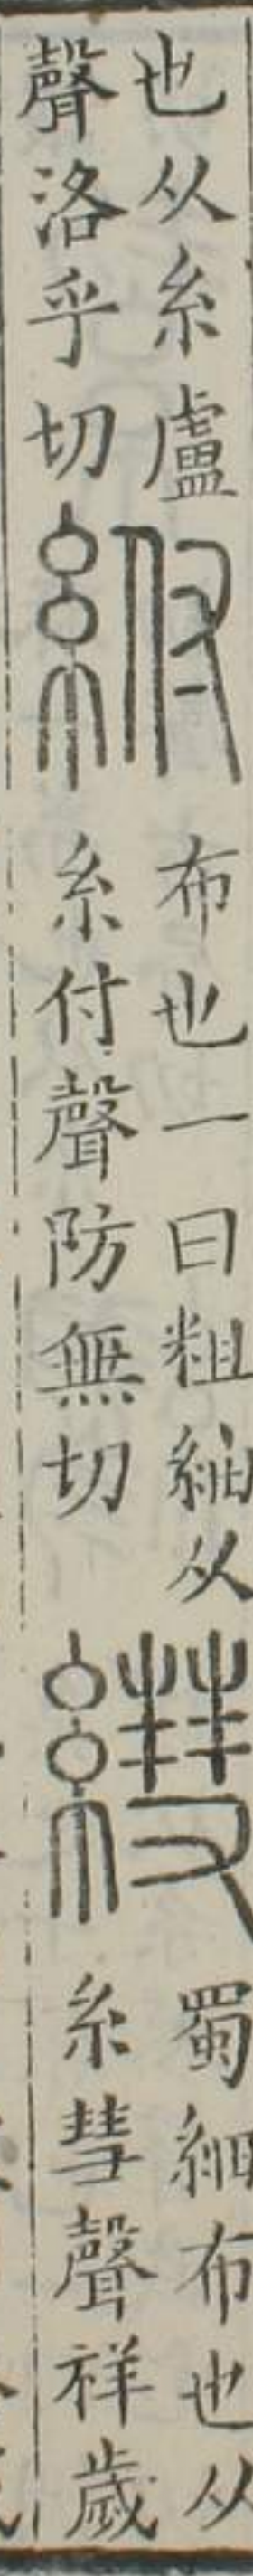 也从糸盧
聲洛乎切
䋨
布也一曰粗紬从
糸付聲防無切
繐
蜀細布也从
糸彗聲祥歲